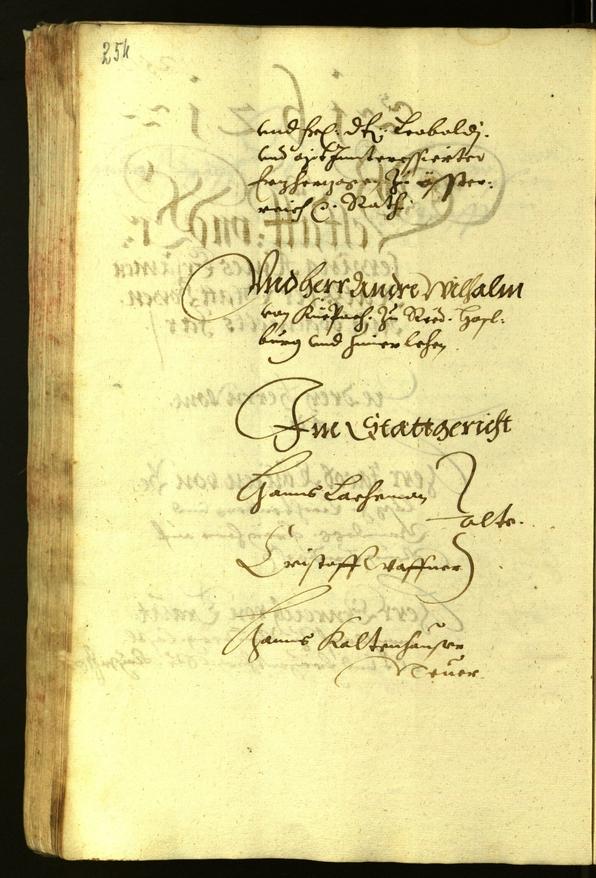 254
und frl: dt: Leoboldj.
und Interessierter
Erzherzogen ZuÖsster:
reich Rath.
Und herr Andre Wilhalm
von Küepach. Zu Ried. Hasl:
burg und Zimerlehen.
Im Stattgericht
Hanns Lacheman
alte.
Cristoff Waffner
Hanns Kaltenhauser
Neuer